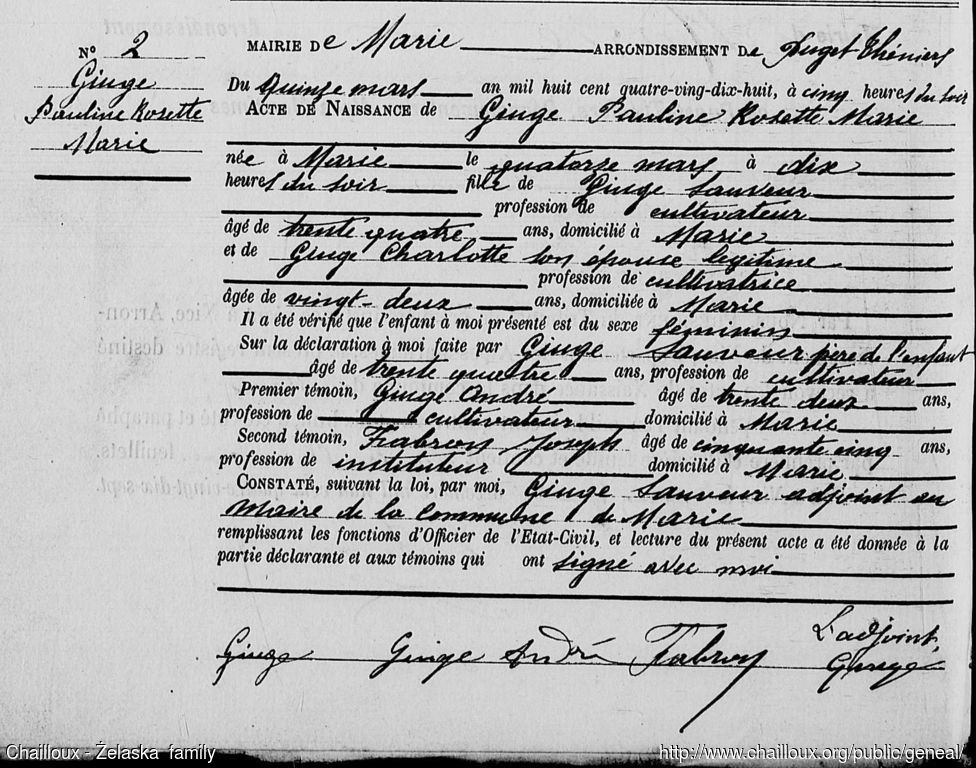 N° 2
Ginge
Pauline Rosette
Marie
MAIRIE De Marie ARRONDISSEMENT De Puget Théniers
Du Quinze mars an mil huit cent quatre-ving-dix-huit, à cinq heures du soir
ACTE DE NAISSANCE de Ginge Pauline Rosette Marie
née à Marie le quatorze mars à dix
heures du soir fille de Ginge Sauveur
profession de cultivateur
âgé de trente quatre ans, domicilié à Marie
et de Ginge Charlotte son épouse legitime
profession de cultivatrice
âgée de vingt-deux ans, domiciliée à Marie
Il a été vérifié que l'enfant à moi présenté est du sexe féminin
Sur la déclaration à moi faite par Ginge Sauveur père de l'enfant
âgé de trente quatre ans, profession de cultivateur
Premier témoin, Ginge André âgé de trente deux ans,
profession de cultivateur domicilié à Marie
Second témoin, Fabron Joseph âgé de cinquante cinq ans,
profession de instituteur domicilié à Marie
CONSTATÉ, suivant la loi, par moi, Ginge Sauveur adjoint au
Maire de la Commune de Marie
remplissant les fonctions d'Officier de l'Etat-Civil, et lecture du présent acte a été donnée à la
partie déclarante et aux témoins qui ont signé avec moi
L'adjoint,
Ginge Ginge André Fabron Ginge
Chailloux - Żelaska family http://www.chailloux.org/public/geneal/